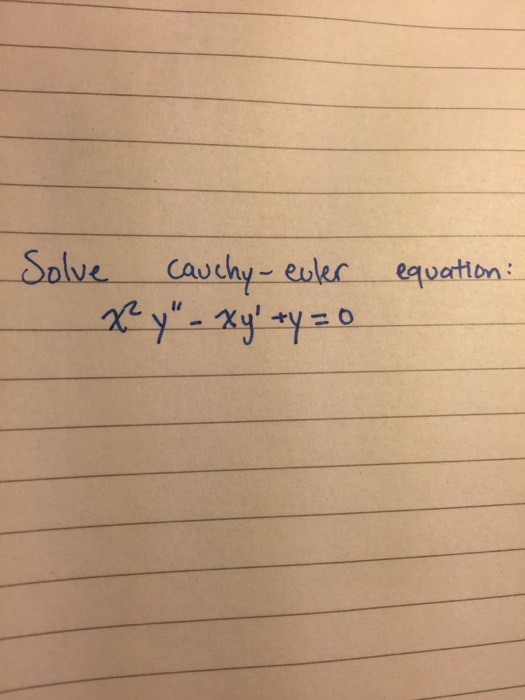 Solve cauchy-euler equation:
x² y" - xy' +y = 0